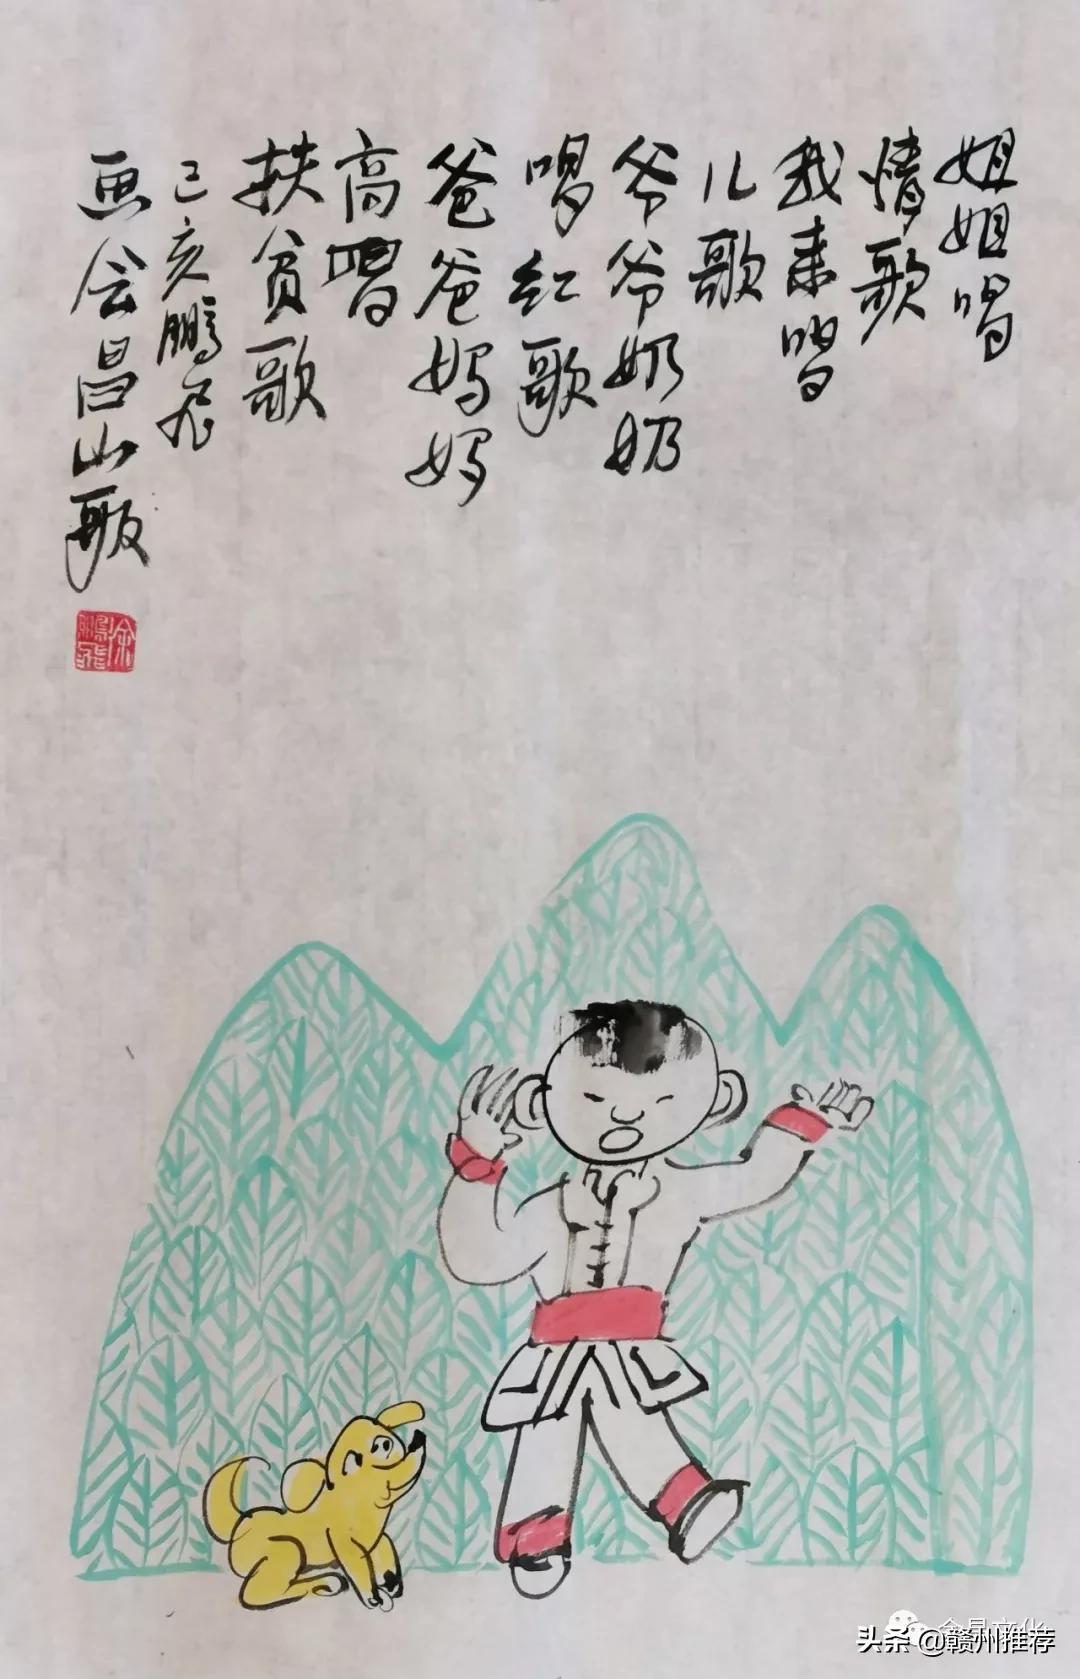 姐姐唱
情歌
我来唱
儿歌
爷爷奶奶
唱红歌
爸爸妈妈
高唱
扶贫歌
己亥鹏飞
画会昌山歌
头条 @赣州推荐